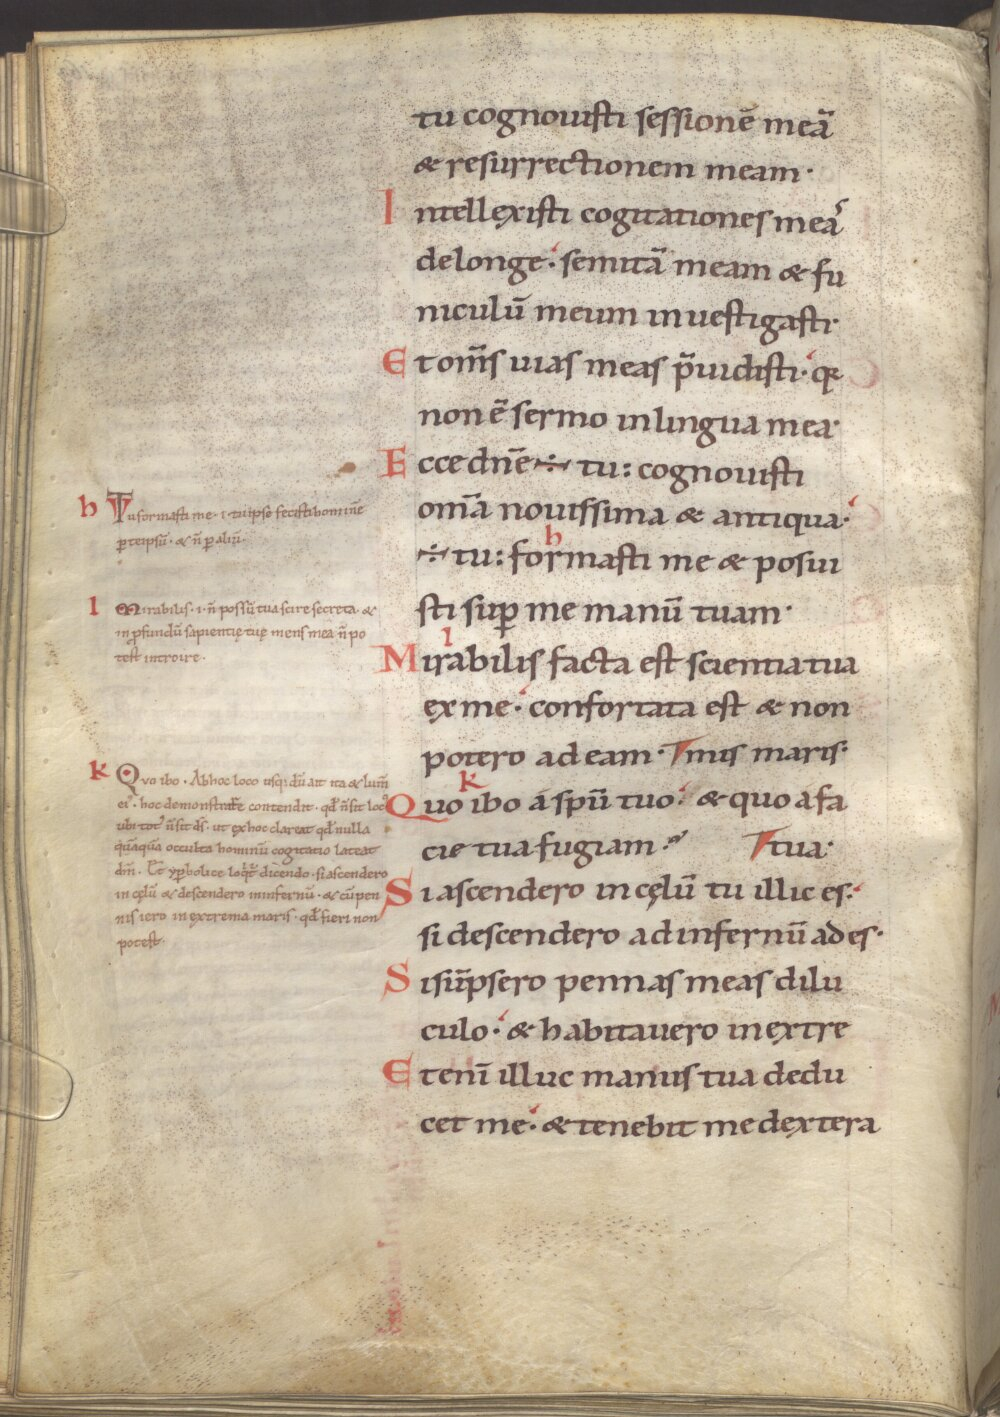 tu cognouisti sessionē meā
& resurrectionem meam·
Intellexisti cogitationes meaˢ
delonge· semitā meam & fu
niculū meum inuestigasti·
Et om̄s uias meas p̄uidisti· qꝛ
non ē sermo inlingua mea·
Ecce dn̄e ÷ tu: cognouisti
om̄a nouissima & antiqua·
h
÷ tu: formasti me & posui
sti suꝑ me manū tuam·
l
Mirabilis facta est scientia tua
ex me· confortata est & non
potero ad eam· mis maris·
k
Quo ibo á spū tuo· & quo a fa
cie tua fugiam· tua·
Si ascendero in cęlū tu illic es·
si descendero ad infernū ades·
Si sūpsero pennas meas dilu
culo· & habitauero in extre
Etenī illuc manus tua dedu
cet me· & tenebit me dextera
h Tu formasti me· i· tu ipse fecisti hominē
ꝑ teipsū· & n̄ ꝑ aliū·
l Mirabilis· i· n̄ possū tua scire secreta· &
in ꝓfundū sapientię tuę mens mea n̄ po
test introire·
k Quo ibo· Ab hoc loco usqꝫ dū ait ita & lum̄
ei᾽· hoc demonstrare contendit· qd̄ n̄ sit loc᾽
ubi tot᾽ n̄ sit ds̄· ut ex hoc clareat qd̄ nulla
quāquā occulta hominū cogitatio lateat
dm̄· Et yꝑbolice loqͥt᾽ dicendo· si ascendero
in cęlū & descendero in infernū· & cū pen
nis iero in extrema maris· qd̄ fieri non
potest·